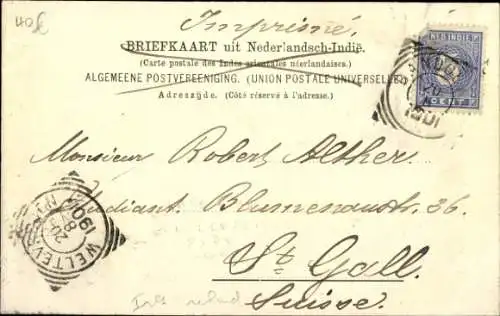 40€
Imprimé.
BRIEFKAART uit Nederlandsch-Indië.
(Carte postale des Indes orientales néerlandaises.)
ALGEMEENE POSTVEREENIGING. (UNION POSTALE UNIVERSELLE)
Adreszijde. (Côté réservé à l'adresse.)
NED-INDIË
CENT
1901
Monsieur Robert Alther
Etudiant. Blumenaustr. 36.
St Gall.
Suisse.
WELTEV
1901